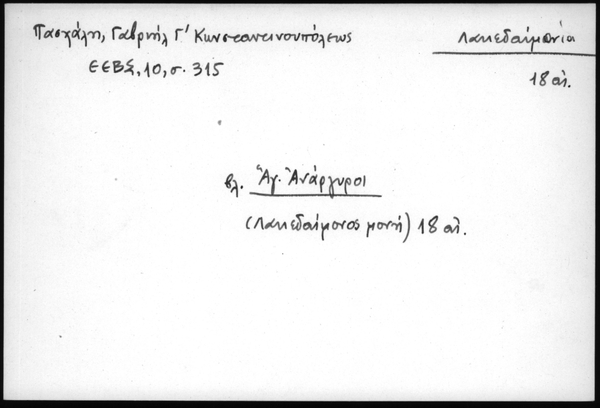 Πασχάλη, Γαβριήλ Γ' Κωνσταντινουπόλεως
ΕΕΒΣ, 10, σ. 315
Λακεδαιμονία
18 αἰ.
βλ. Ἅγ. Ἀνάργυροι
(Λακεδαίμονος μονή) 18 αἰ.